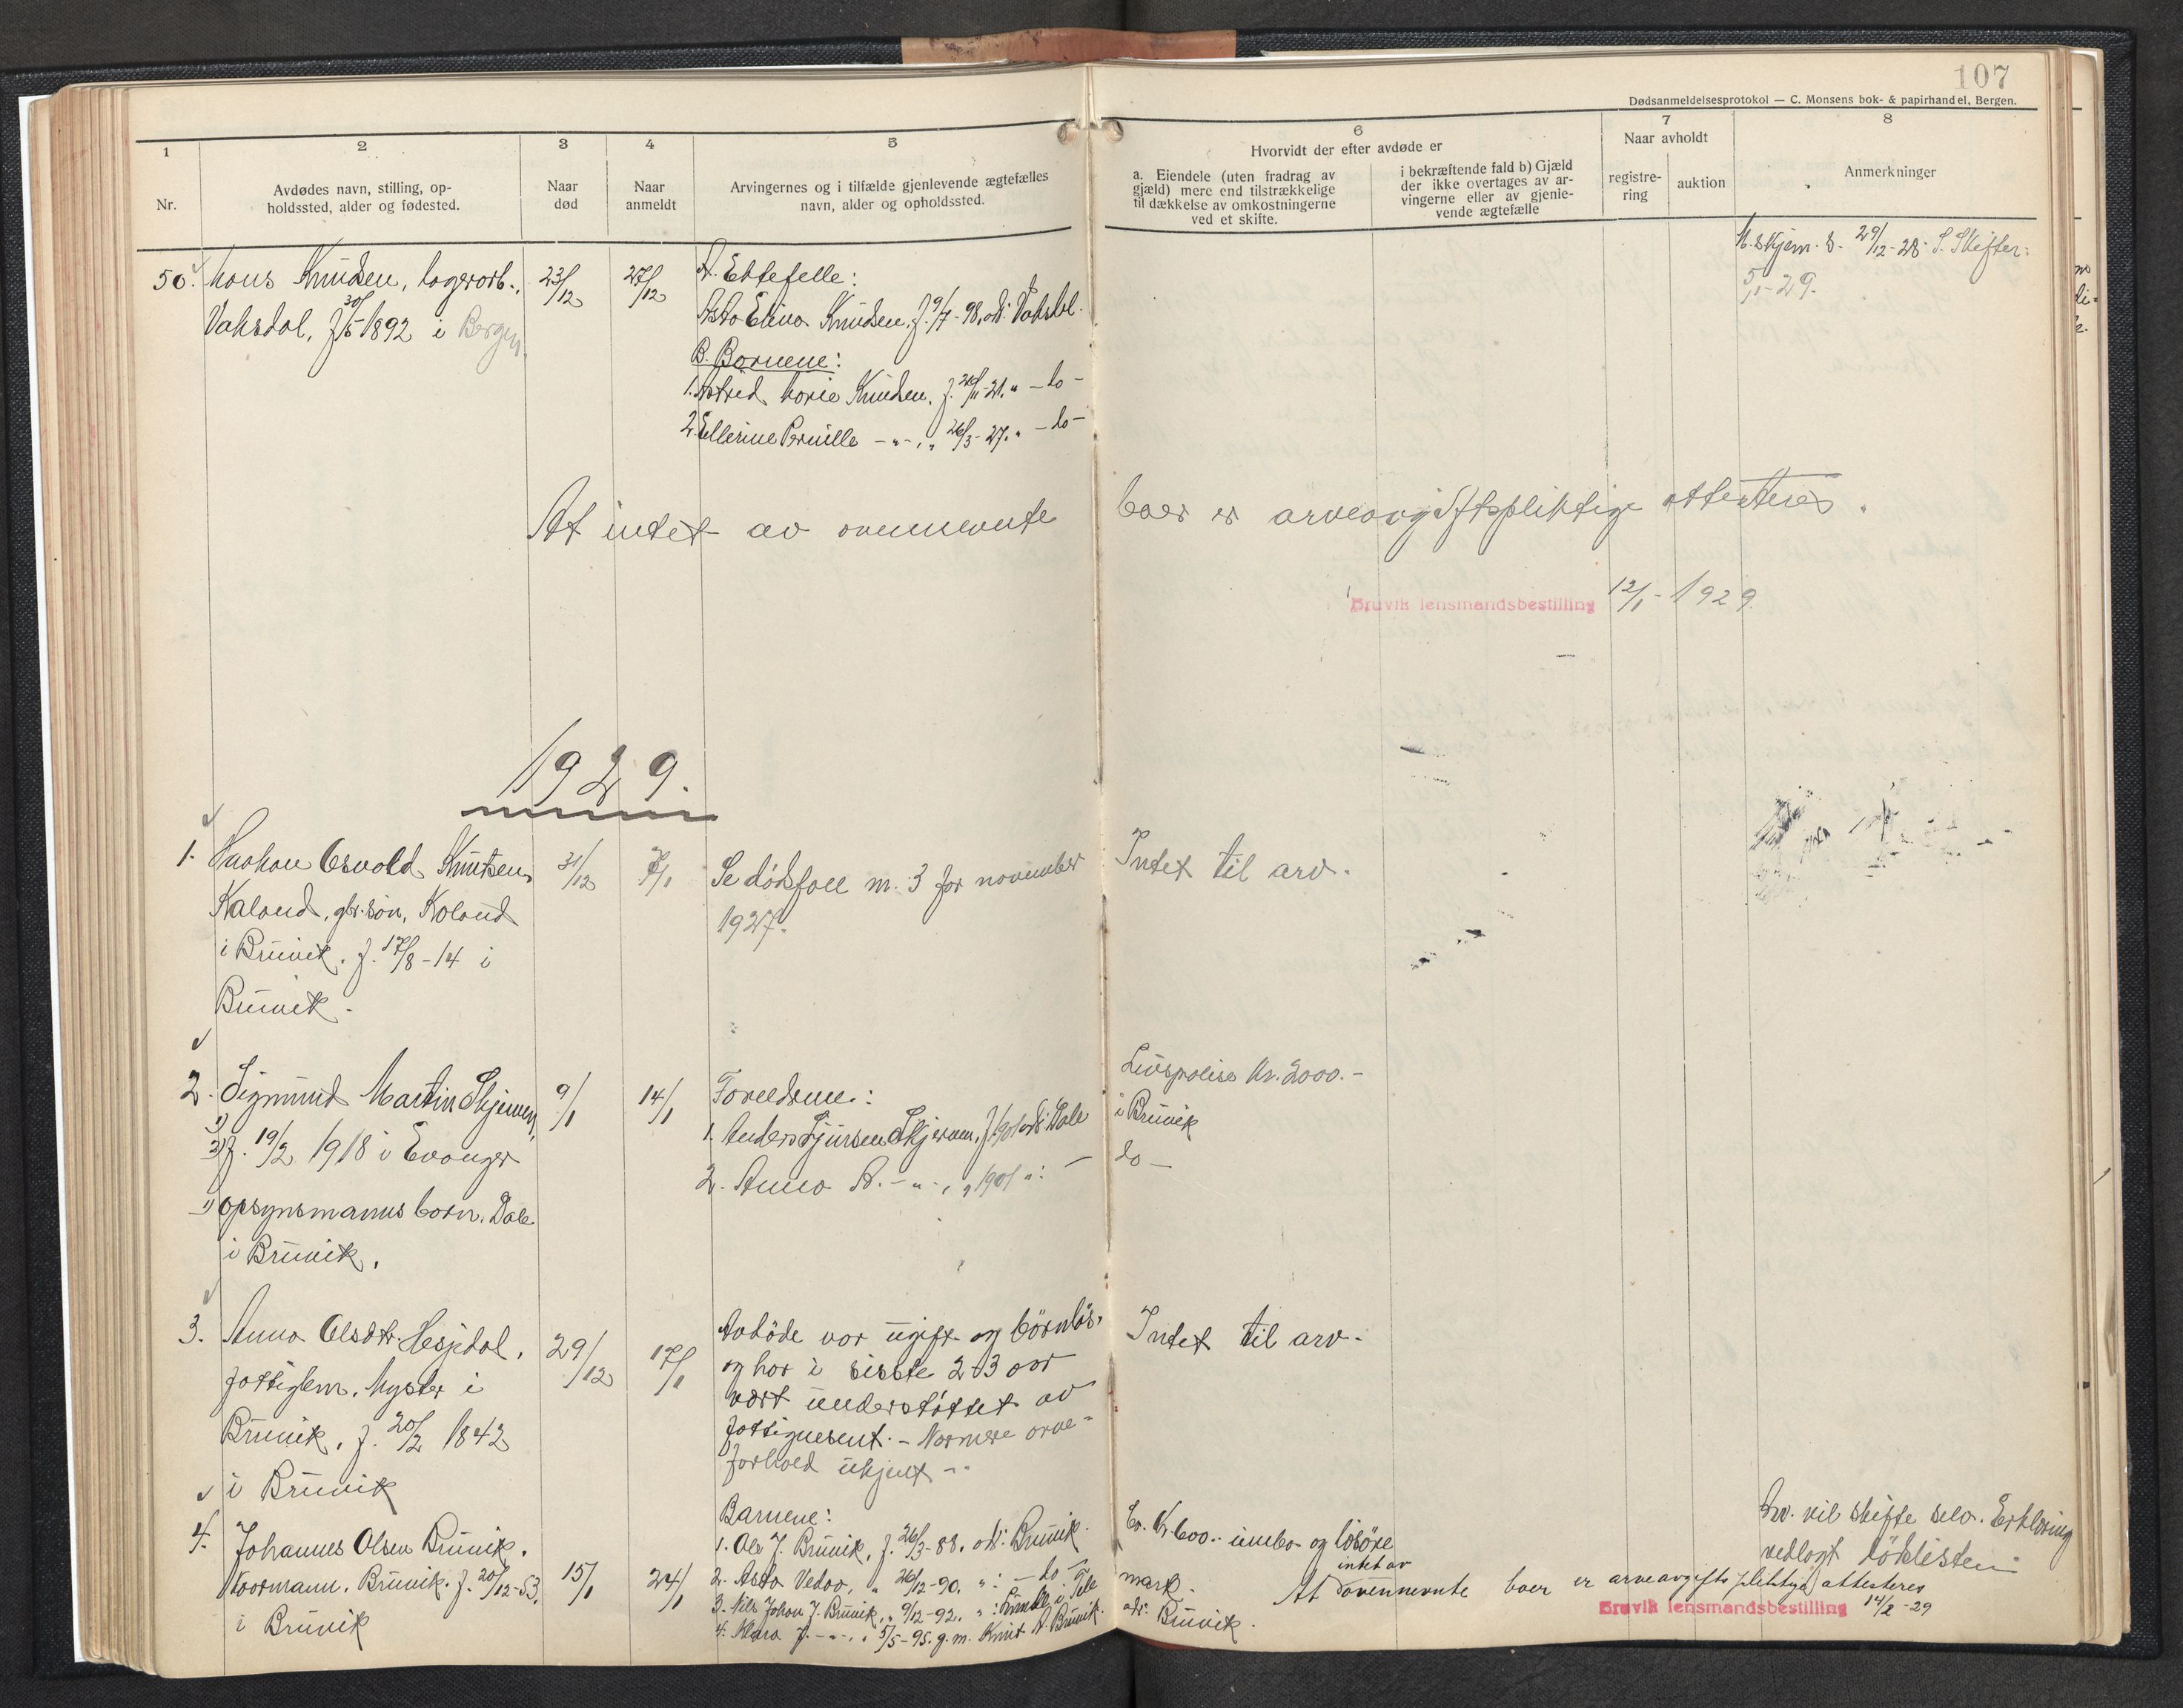 107
Dødsanmeldelsesprotokol — C. Monsens bok- & papirhandel, Bergen.
1
Nr.
2
Avdødes navn, stilling, op-
holdssted, alder og fødested.
3
Naar
død
4
Naar
anmeldt
5
Arvingernes og i tilfælde gjenlevende ægtefælles
navn, alder og opholdssted.
6
Hvorvidt der efter avdøde er
a. Eiendele (uten fradrag av
gjæld) mere end tilstrækkelige
til dækkelse av omkostningerne
ved et skifte.
i bekræftende fald b) Gjæld
der ikke overtages av ar-
vingerne eller av gjenle-
vende ægtefælle
7
Naar avholdt
registre-
ring
auktion
8
Anmerkninger
50. Hans Knudsen, lagerarb.,
Vaksdal, f. 30/5 1892 i Bergen.
23/12
27/12
A. Ektefelle:
Asta Elina Knudsen, f. 9/7-98, adr: Vaksdal.
B. Barnene:
1. Astrid Marie Knudsen, f. -21. " - do -
2. Ellerine Pernille - " - , " 26/3-27. " - do -
29/12-28 S. Skifter:
5/1-29.
At intet av ovennevnte boer er arveavgiftspliktige attesteres.
Bruvik lensmandsbestilling 12/1-1929.
1929.
1. Haakon Osvald Knutsen
Kaland, gbr.søn, Kaland
i Bruvik. f. 17/8-14 i
Bruvik.
31/12
7/1
Se dødsfall nr. 3 for november
1927.
Intet til arv.
2. Sigmund Martin Skjerven,
2) f. 19/2 1918 i Evanger
1) opsynsmanns barn, Dale
i Bruvik.
9/1
14/1
Foreldrene:
1. Anders Sjursen Skjerven, f. 1901 adr: Dale
i Bruvik
2. Anna A. - " - , " 1901 " : -
do -
Livspolise kr. 2000.-
3. Anna Olsdtr. Hesjedal,
fattiglem, Myster i
Bruvik, f. 20/2 1842
i Bruvik
29/12
17/1
Avdøde var ugift og børnløs
og har i sisste 2-3 aar
vært understøttet av
fattigvesent. - Nærmere arve-
forhold ukjent -
Intet til arv.
4. Johannes Olsen Bruvik,
Kaarmann, Bruvik. f. 20/12-53.
i Bruvik
15/1
24/1
Barnene:
1. Ole J. Bruvik, f. 26/3-88. adr: Bruvik.
2. Asta Vedaa, " 26/12-90. " : - do -
3. Nils Johan J. Bruvik, " 9/12-92. " :
4. Klara J. - " - , " 5/5-95. g.m. Knut A. Bruvik.
adr: Bruvik.
Ca. Kr. 600.- innbo og løsøre
Arv. vil skifte selv. Erklæring
vedlagt dødslisten
At intet av ovennevnte boer er arveavgiftspliktige attesteres
Bruvik lensmandsbestilling 14/2-29